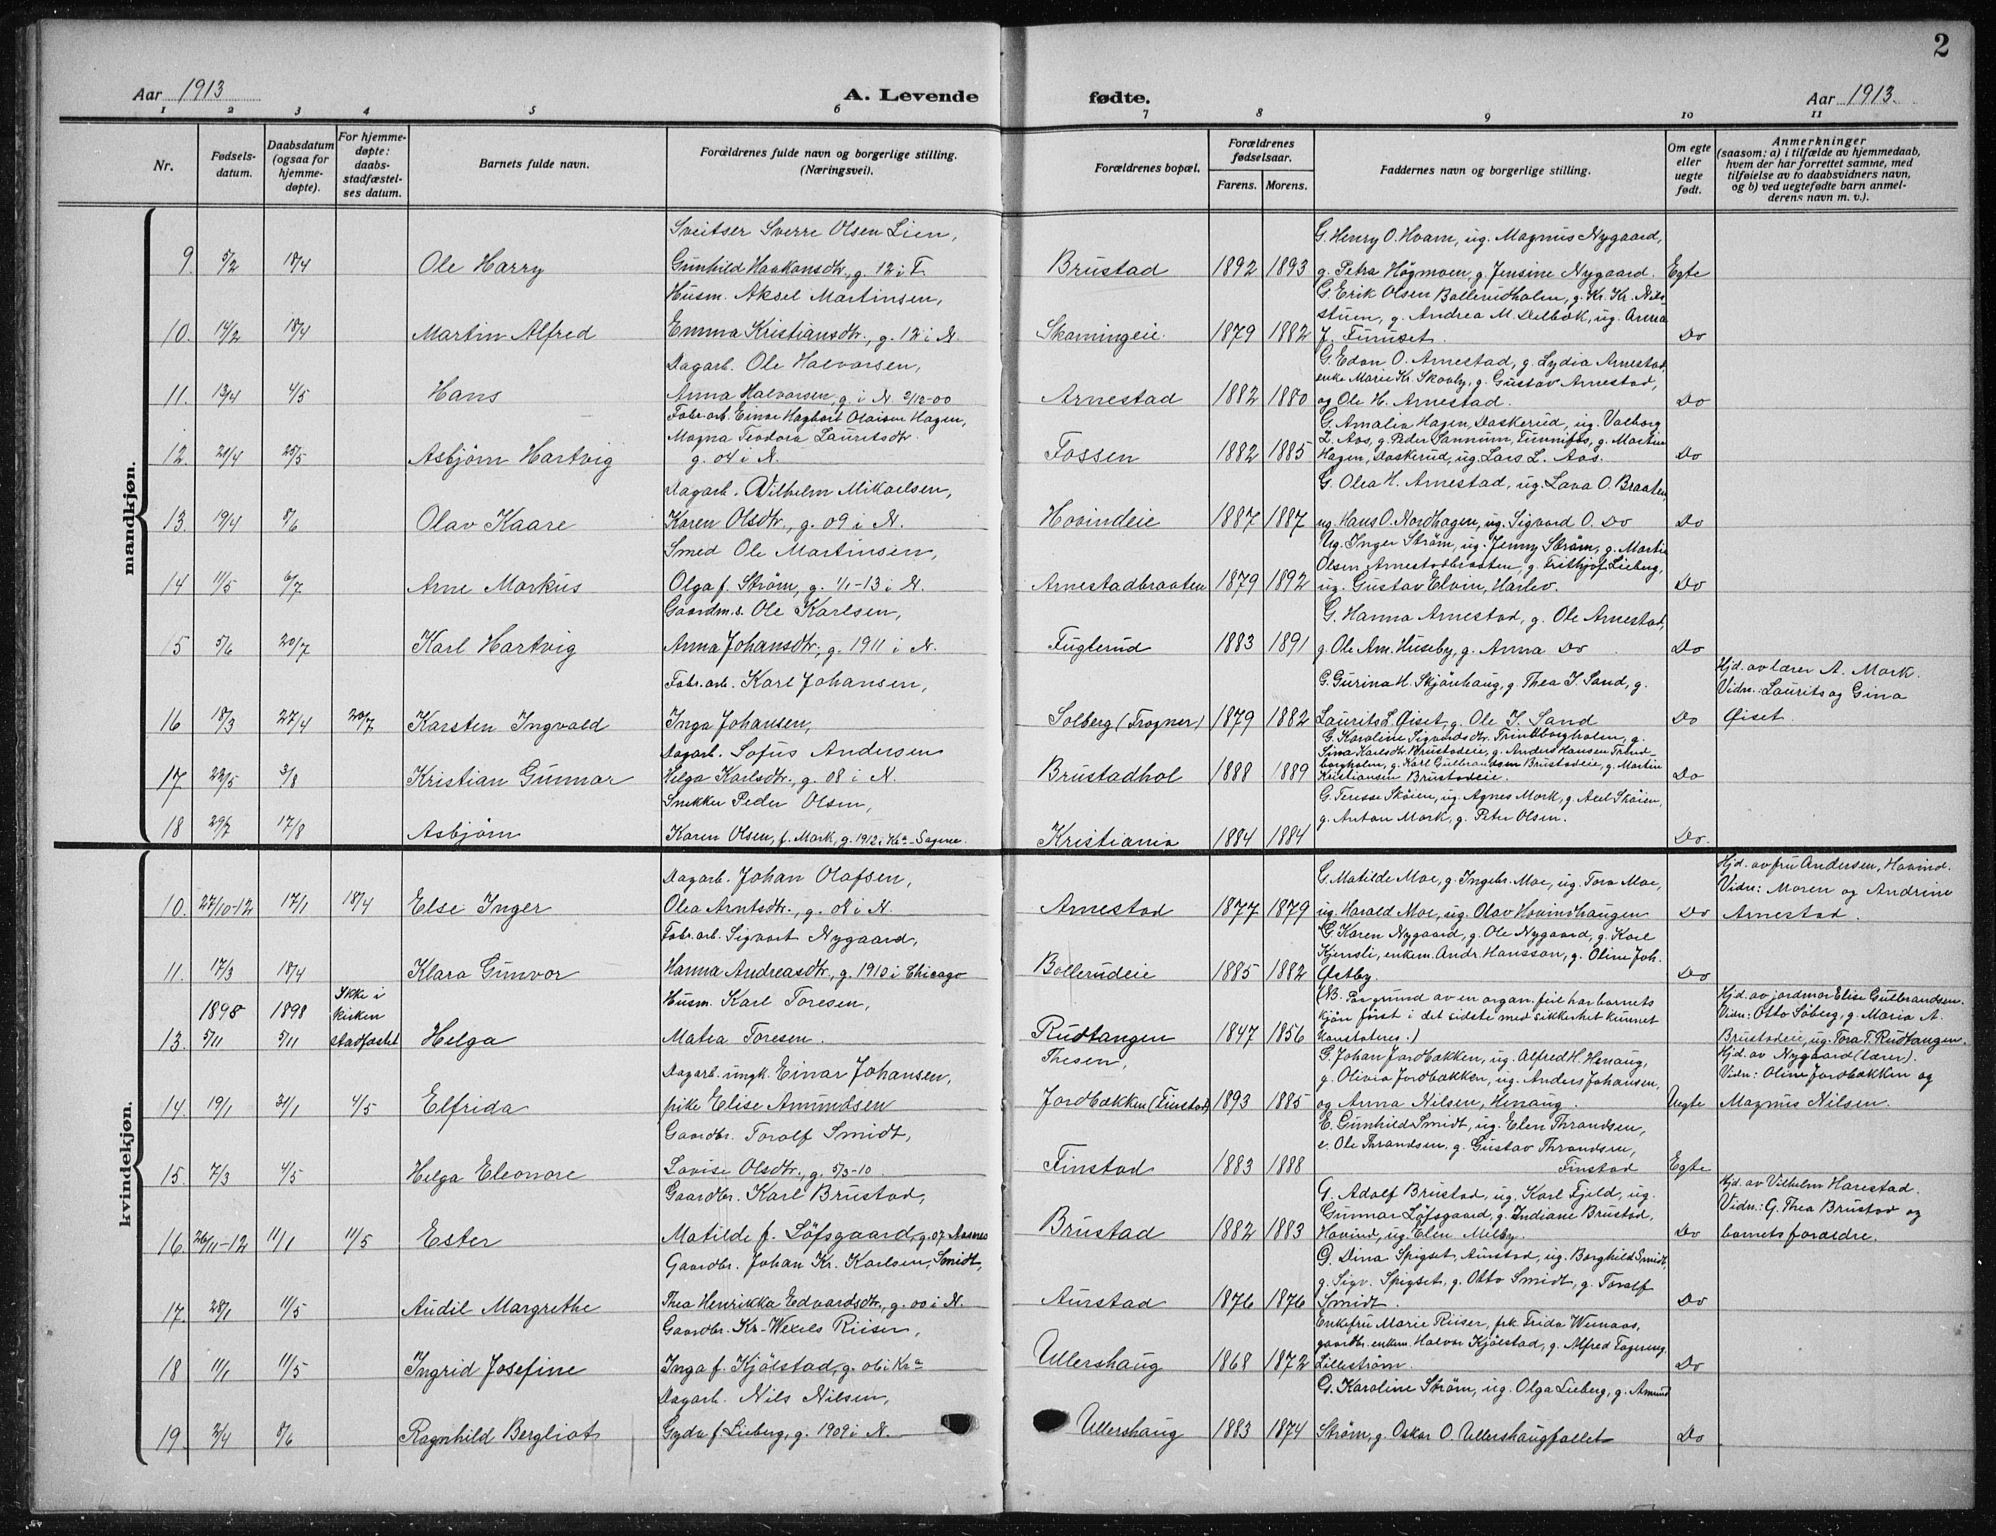 2
Aar 1913
A. Levende fødte.
Aar 1913.
1 2 3 4 5 6 7 8 9 10 11
Nr.
Fødsels-
datum.
Daabsdatum
(ogsaa for
hjemme-
døpte).
For hjemme-
døpte:
daabs-
stadfæstel-
ses datum.
Barnets fulde navn.
Forældrenes fulde navn og borgerlige stilling.
(Næringsvei).
Forældrenes bopæl.
Forældrenes
fødselsaar.
Farens. Morens.
Faddernes navn og borgerlige stilling.
Om egte
eller
uegte
født.
Anmerkninger
(saasom: a) i tilfælde av hjemmedaab,
hvem der har forrettet samme, med
tilføielse av to daabsvidners navn,
og b) ved uegtefødte barn anmel-
derens navn m. v.).
mandkjøn.
Sveitser Sverre Olsen Lien,
G. Henry O. Hvam, ug. Magnus Nygaard,
9 5/2 18/4 Ole Harry Gunhild Haakonsdtr, g. 12 i T. Brustad 1892 1893 g. Petra Högmoen, g. Jensine Nygaard. Egte
Husm. Aksel Martinsen,
G. Erik Olsen Bollerudholen, g. Kr. Kr. Nils-
stuen, g. Andrea M. Delbäk, ug. Anna
10. 14/2 18/4 Martin Alfred Emma Kristiansdtr., g. 12 i N. Skamingeie 1879 1882 J. Furuset. Do
Dagarb. Ole Halvorsen,
G. Edon O. Arnestad, g. Lydia Arnestad,
enke Marie Kr. Skovly, g. Gustav Arnestad,
11. 13/4 4/5 Hans Anna Halvorsen, g. i N. 2/12-00 Arnestad 1882 1880 og Ole H. Arnestad. Do
Fabr.arb. Einar Hagbart Olaisen Hagen,
Magna Teodora Lauritsdtr.
G. Amalia Hagen, Daskerud, ug. Valborg
L. Aas, g. Peder Sannum, Tunnifos, g. Martin
12. 21/4 25/5 Asbjørn Hartvig g. 04 i N. Fossen 1882 1885 Hagen, Daskerud, ug. Lars L. Aas. Do
Dagarb. Vilhelm Mikaelsen,
G. Olea H. Arnestad, ug. Lava O. Braaten,
13. 19/4 8/6 Olav Kaare Karen Olsdtr., g. 09 i N. Hovindeie 1887 1887 ug. Hans O. Nordhagen, ug. Sigvard O. Do Do
Smed Ole Martinsen,
Ug. Inger Strøm, ug. Jenny Strøm, g. Martin
Olsen Arnestadbraaten, g. Frithjof Lieberg,
14 11/5 6/7 Arne Markus Olga f. Strøm, g. 1/1-13 i N. Arnestadbraaten 1879 1892 ug. Gustav Elvin, Harlev. Do
Gaardm.s. Ole Karlsen,
G. Hanna Arnestad, g. Ole Arnestad,
15 5/6 20/7 Karl Hartvig Anna Johansdtr., g. 1911 i N. Fuglerud 1883 1891 g. Ole Am. Huseby, g. Anna Do Do
Fabr.arb. Karl Johansen,
G. Gurina H. Skjönhaug, g. Thea I. Sand, g.
Hjd. av lærer A. Mork.
Vidn.: Laurits og Gina
16 18/3 27/4 20/7 Karsten Ingvald Inga Johansen, Solberg (Trogner) 1879 1882 Laurits L. Øiset, g. Ole I. Sand Do Øiset.
Dagarb. Sofus Andersen
G. Karoline Sigvardsdtr. Trindborgholen, g.
Sina Karlsdtr. Brustadeie, g. Anders Hansen Trind-
borgholen, g. Karl Gulbrandsen Brustadeie, g. Martin
17 22/5 3/8 Kristian Gunnar Helga Karlsdtr., g. 08 i N. Brustadhol 1888 1889 Kristiansen Brustadeie. Do
Snekker Peder Olsen,
G. Terese Skøien, ug. Agnes Mork, g. Axel Skøien,
g. Anton Mork, g. Peter Olsen.
18 29/7 17/8 Asbjørn Karen Olsen, f. Mork, g. 1912 i Kra-Sagene. Kristiania 1884 1884 Do.
kvindekjøn.
Dagarb. Johan Olafsen,
G. Matilde Moe, g. Ingebr. Moe, ug. Tora Moe,
Hjd. av fru Andersen, Hovind.
Vidn: Maren og Andrine
10. 27/10-12 17/1 18/4 Else Inger Olea Arntsdtr., g. 01 i N. Arnestad 1877 1879 ug. Harald Moe, ug. Olav Hovindhaugen Do Arnestad.
Fabr.arb. Sigvart Nygaard,
G. Karen Nygaard, g. Ole Nygaard, g. Karl
Kjensli, enkem. Andr. Hansson, g. Oline Joh.
11. 17/3 18/4 Klara Gunvor Hanna Andreasdtr., g. 1910 i Chicago Bollerudeie 1885 1882 Østby. Do
1898 1898 Ikke i
kirken
Husm. Karl Toresen,
(NB. Paa grund av en organ. feil har barnets
kjøn først i det sidste med sikkerhet kunnet
Hjd. av jordmor Elise Gulbrandsen.
Vidn: Otto Søberg, g. Maria A.
13. 5/11 5/11 stadfæstet Helga Matea Toresen. Rudtangen 1847 1856 konstateres.) Brustadeie, ug. Tora T. Rudtangen.
Dagarb. ungk. Einar Johansen,
Thesen,
G. Johan Jordbækken, ug. Alfred H. Henaug,
g. Olivia Jordbækken, ug. Anders Johansen,
Hjd. av Nygaard (lærer).
Vidn: Oline Jordbækken og
14. 19/1 31/1 4/5 Elfrida pike Elise Amundsen Jordbækken (Finstad) 1893 1885 og Anna Nilsen, Henaug. Uegte Magnus Nilsen.
Gaardbr. Toralf Smidt,
E. Gunhild Smidt, ug. Elen Thrandsen,
e. Ole Thrandsen, g. Gustav Thrandsen,
15. 7/3 4/5 Helga Eleonore Lovise Olsdtr., g. 5/3-10. Finstad 1883 1888 Finstad Egte
Gaardbr. Karl Brustad,
G. Adolf Brustad, ug. Karl Fjeld, ug.
Gunnar Løfsgaard, g. Indiane Brustad,
Hjd. av Vilhelm Harestad.
Vidn: G. Thea Brustad og
16. 26/11-12 11/1 11/5 Ester Matilde f. Løfsgaard, g. 07 Aasnes Brustad 1882 1883 Hovind, ug. Elen Melby. Do barnets forældre.
Gaardbr. Johan Kr. Karlsen, Smidt,
G. Dina Spigset, Aurstad, ug. Borghild Smidt,
g. Sigv. Spigset, g. Otto Smidt, g. Toralf
17. 28/1 11/5 Audil Margrethe Thea Henrikka Edvardsdtr., g. 00 i N. Aurstad 1876 1876 Smidt. Do
Gaardbr. Kr. Wexels Riiser,
Enkefru Marie Riiser, frk. Frida Wennaas,
gaardbr. enkem. Halvor Kjølstad, g. Alfred Fageraas,
18 11/1 11/5 Ingrid Josefine Inga f. Kjølstad, g. 06 i Kra Ullershaug 1868 1872 Lillestrøm. Do
Dagarb. Nils Nilsen,
G. Karoline Strøm, ug. Olga Lieberg, g. Amund
19. 2/4 8/6 Ragnhild Bergliot Gyda f. Lieberg, g. 1909 i N. Ullershaug 1883 1874 Strøm, g. Oskar O. Ullershaugfallet Do